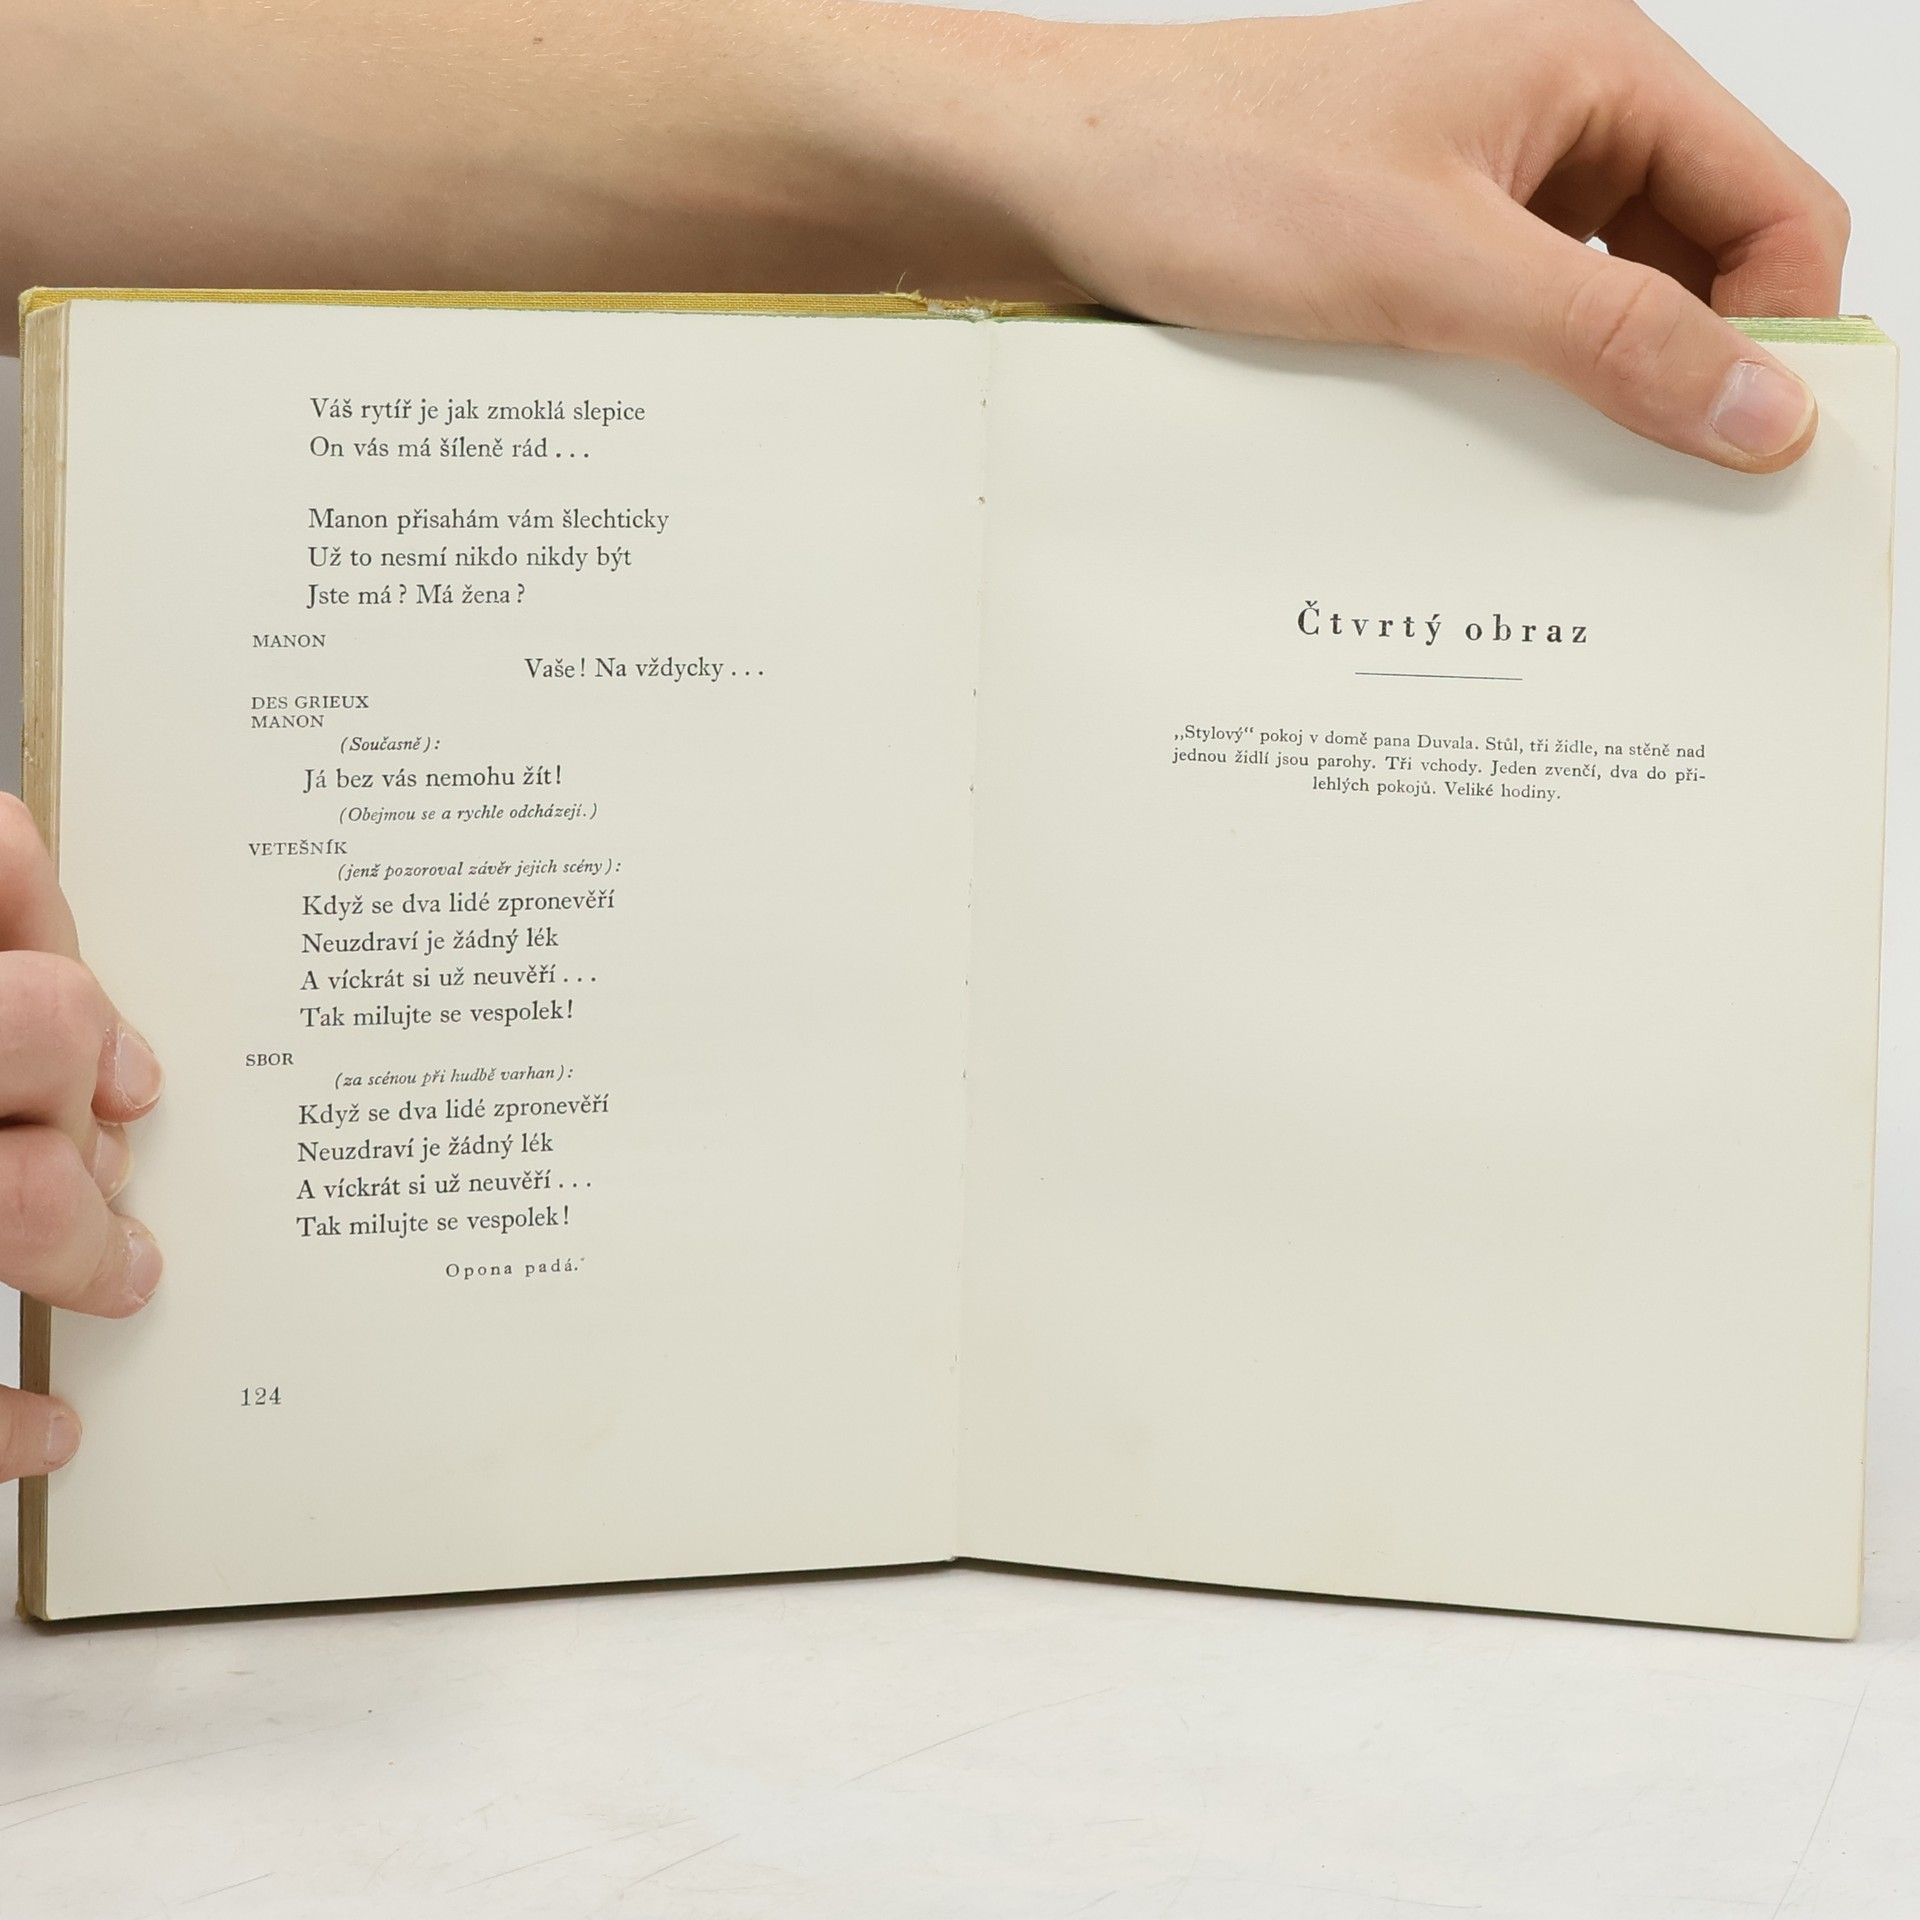 Váš rytíř je jak zmoklá slepice
On vás má šíleně rád . . .
Manon přisahám vám šlechticky
Už to nesmí nikdo nikdy být
Jste má? Má žena?
MANON
Vaše! Na vždycky . . .
DES GRIEUX
MANON
(Současně):
Já bez vás nemohu žít!
(Obejmou se a rychle odcházejí.)
VETEŠNÍK
(jenž pozoroval závěr jejich scény):
Když se dva lidé zpronevěří
Neuzdraví je žádný lék
A víckrát si už neuvěří . . .
Tak milujte se vespolek!
SBOR
(za scénou při hudbě varhan):
Když se dva lidé zpronevěří
Neuzdraví je žádný lék
A víckrát si už neuvěří . . .
Tak milujte se vespolek!
Opona padá.
124
Čtvrtý obraz
„Stylový“ pokoj v domě pana Duvala. Stůl, tři židle, na stěně nad
jednou židlí jsou parohy. Tři vchody. Jeden zvenčí, dva do při-
lehlých pokojů. Veliké hodiny.